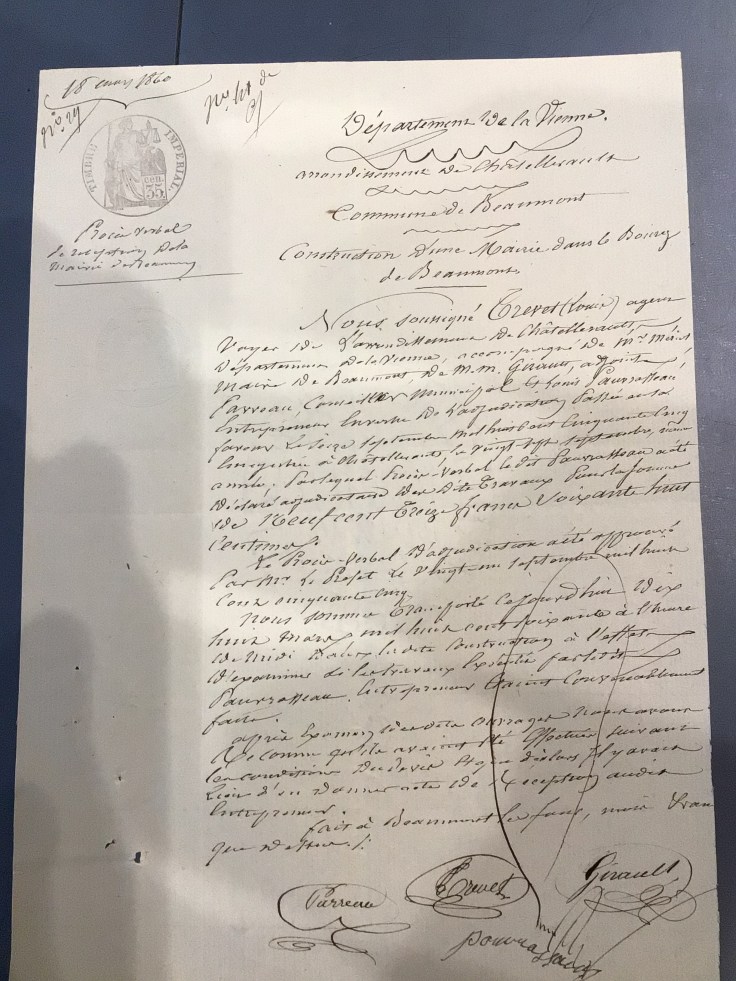 18 mars 1860
n.o 29
TIMBRE IMPERIAL
35 cen.
Procès Verbal
de réception de la
Mairie de Beaumont
Département de la Vienne.
arrondissement de Châtellerault
Commune de Beaumont
Construction d'une Mairie dans le Bourg
de Beaumont
Nous soussigné Trevet (Louis) agent
Voyer de L'arrondissement de Châtellerault,
Département de la Vienne, accompagné de Mr
Maire de Beaumont, de M.M. Girault, adjoint,
Parreau, Conseiller Municipal et Louis
Entrepreneur En vertu de l'adjudication Passée en sa
faveur Le Seize septembre mil huit cent Cinquante Cinq
Enregistrée à Châtellerault, le vingt sept septembre, même
année. Par lequel Procès-Verbal le dit a été
déclaré adjudicataire des dits Travaux Pour la somme
de Neuf cent Treize francs Soixante huit
Centimes.
Le Procès-Verbal d'adjudication a été approuvé
Par Mr Le Préfet Le Vingt un septembre mil huit
Cent cinquante Cinq
Nous sommes Transporté Cejourd'hui dix
huit Mars mil huit cent soixante à l'heure
de Midi dans la dite Construction à l'effet
d'examiner si les travaux Exécutés par le dit
Entrepreneur Etaient Convenablement
faits.
après Examen des dits ouvrages nous avons
Reconnu qu'ils avaient été Effectués suivant
les conditions du devis et que dès lors il y avait
Lieu d'en donner acte de réception audit
Entrepreneur.
fait à Beaumont les jour, mois et an
que dessus ./.
Parreau
Trevet
Girault